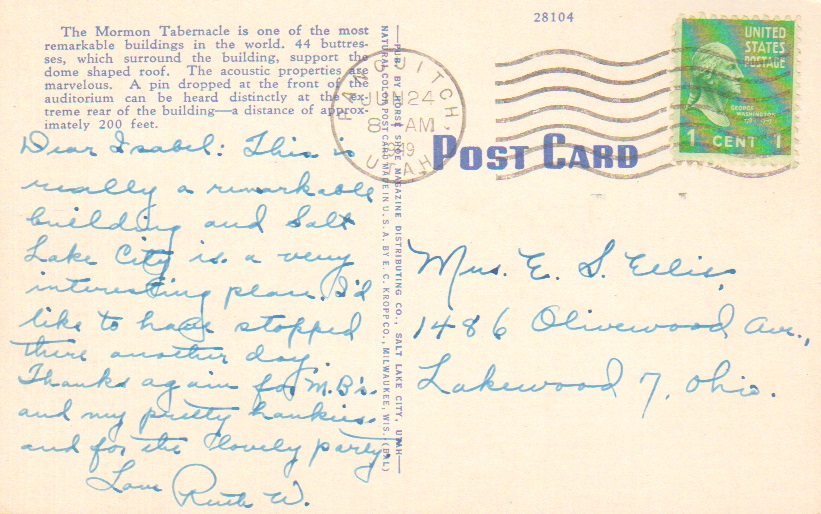 The Mormon Tabernacle is one of the most
remarkable buildings in the world. 44 buttres-
ses, which surround the building, support the
dome shaped roof. The acoustic properties are
marvelous. A pin dropped at the front of the
auditorium can be heard distinctly at the ex-
treme rear of the building—a distance of approx-
imately 200 feet.
Dear Isabel: This is
really a remarkable
building and Salt
Lake City is a very
interesting place. I'd
like to have stopped
there another day.
Thanks again for M.B's.
and my pretty hankies.
and for the lovely party.
Love Ruth W.
—PUB. BY HORSE SHOE MAGAZINE DISTRIBUTING CO., SALT LAKE CITY, UTAH—
NATURAL COLOR POST CARD MADE IN U.S.A. BY E. C. KROPP CO., MILWAUKEE, WIS. (BAL)
28104
PANGUITCH,
JUN 24
8 AM
UTAH
POST CARD
UNITED
STATES
POSTAGE
GEORGE
WASHINGTON
1 CENT 1
Mrs. E. S. Ellis,
1486 Olivewood Ave.,
Lakewood 7, Ohio.